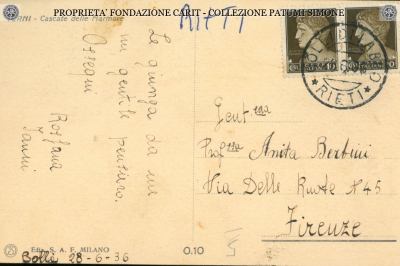 PROPRIETA' FONDAZIONE CARIT - COLLEZIONE PATUMI SIMONE
TERNI - Cascate delle Marmore
RIETI
Le giunga da me
un gentile pensiero.
Ossequi
Rosfana
RIETI
Gent.ssa
Prof.ssa Anita Berbini
Via Delle Ruote N 45
Firenze
Ediz. S. A. F. MILANO
0.10
28-6-36